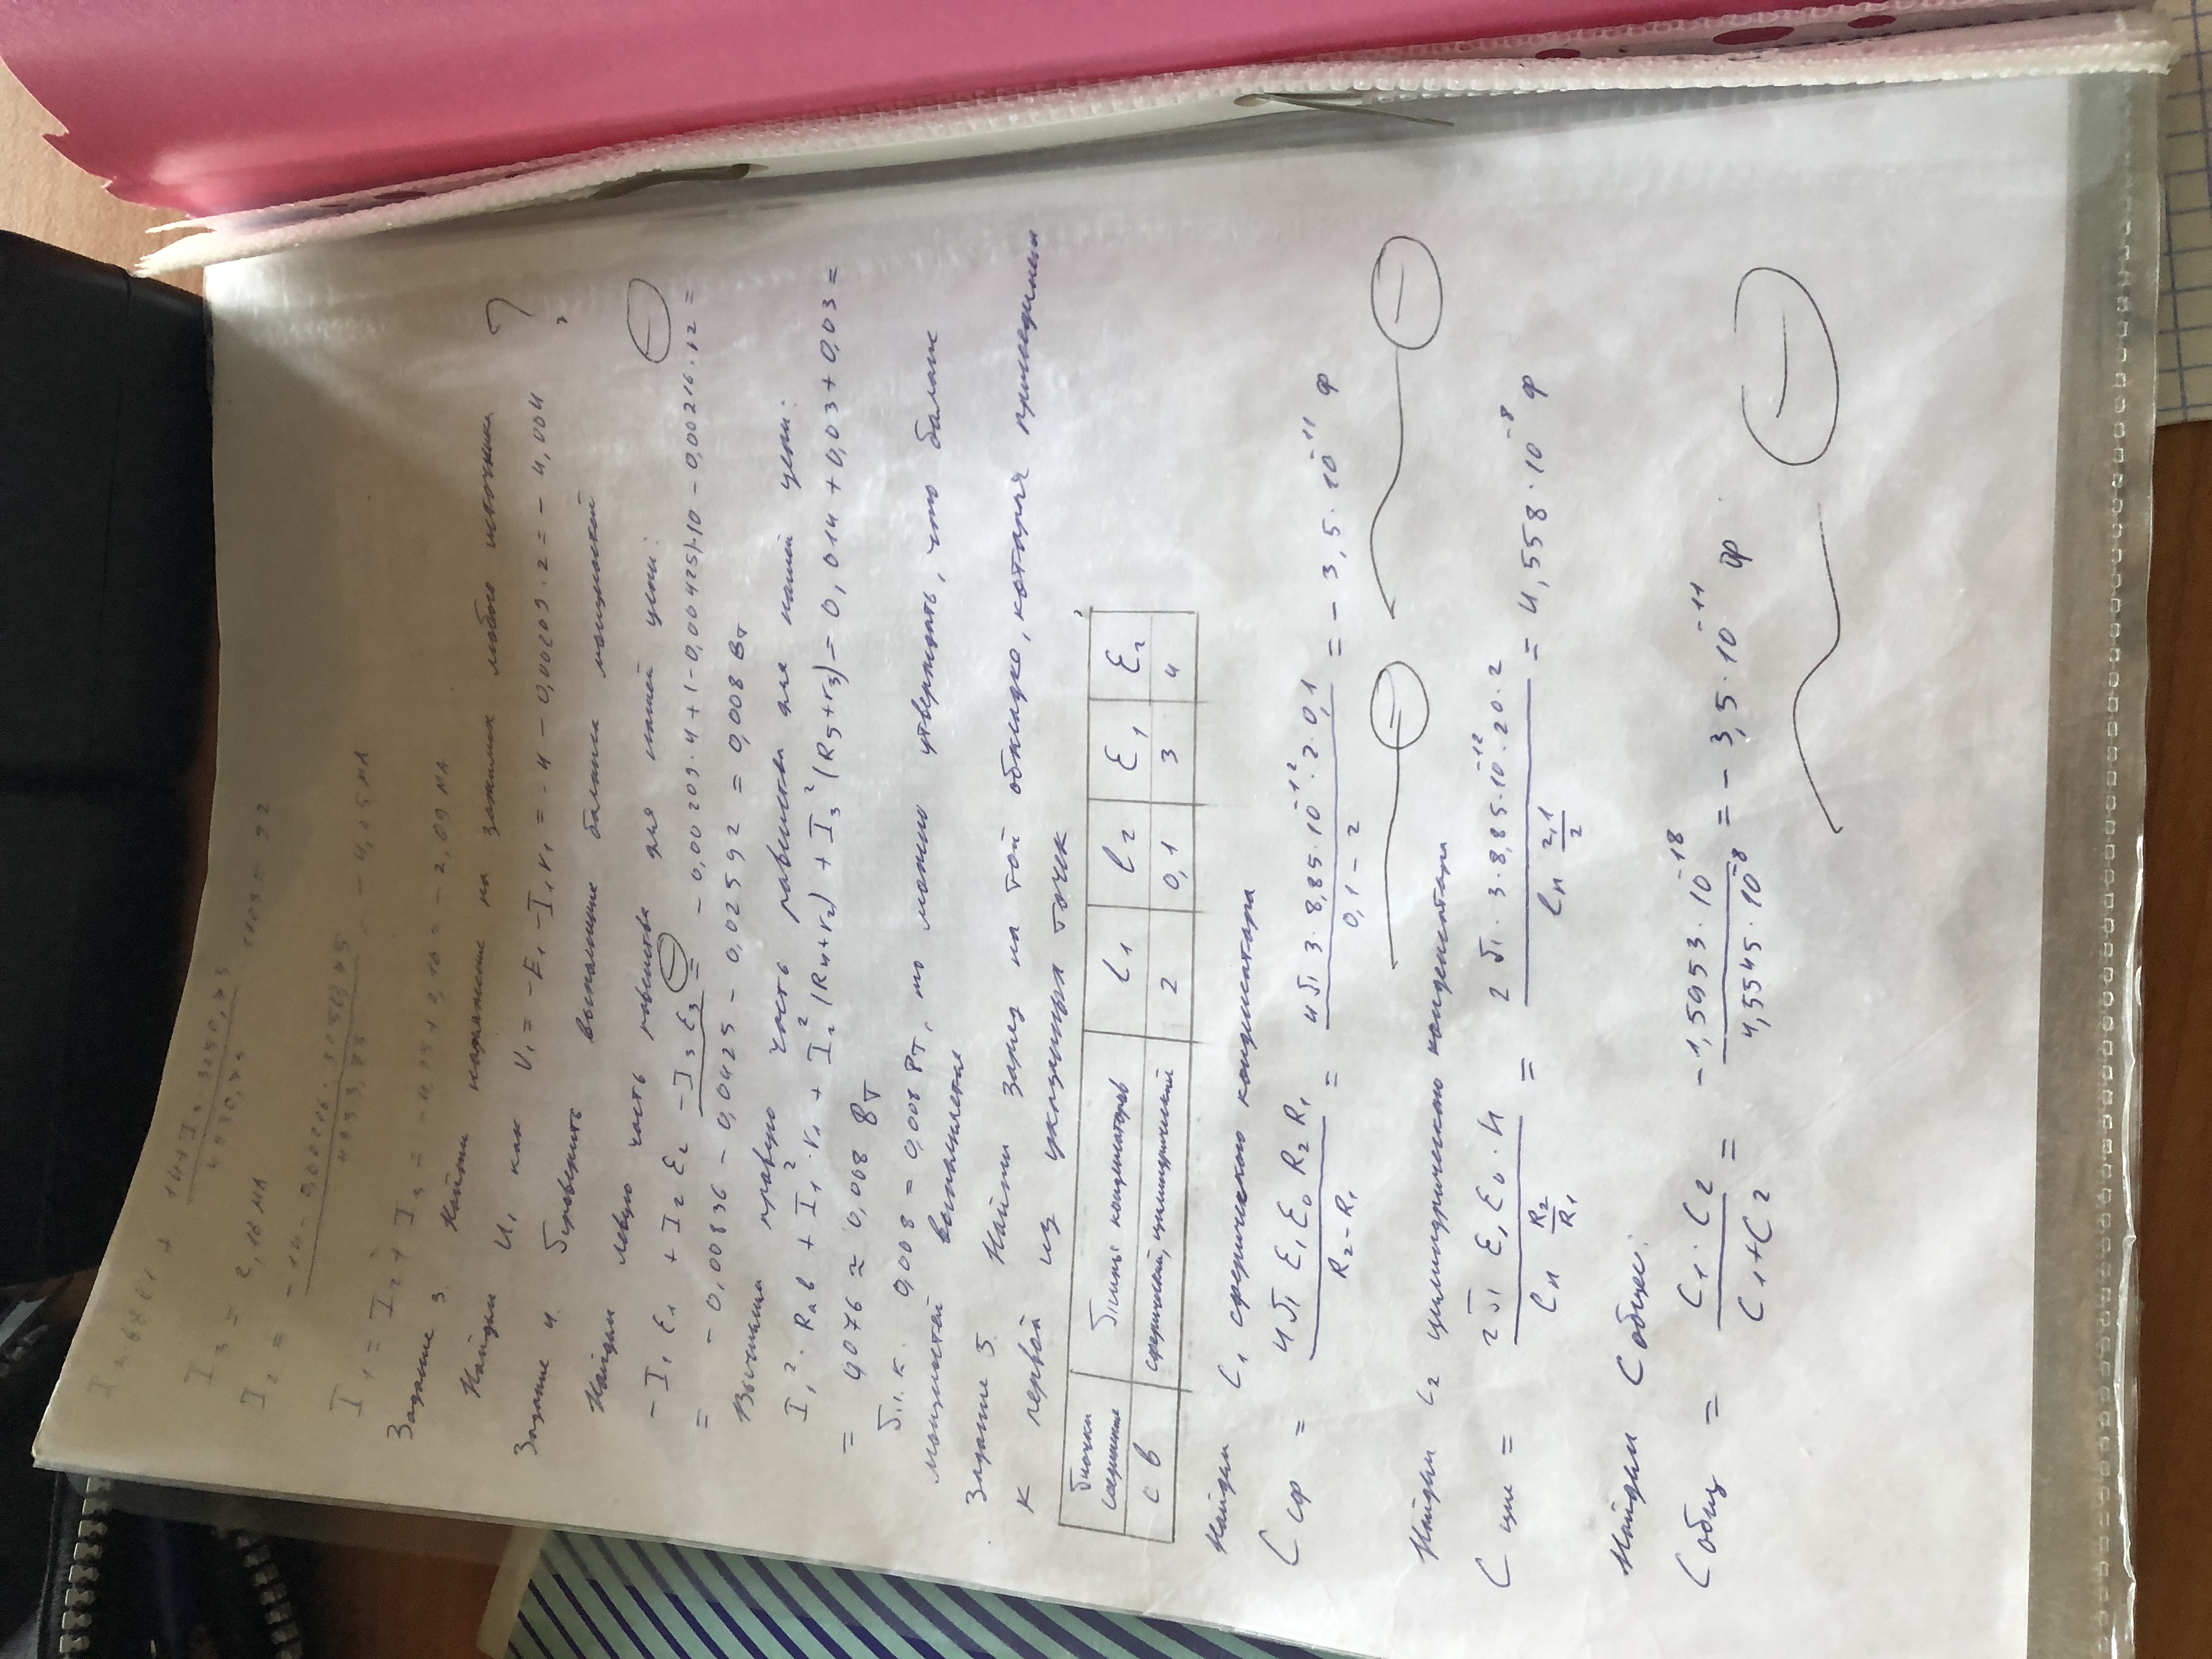 I₃ · 6801 + (14 + I₃ · 3250,75) / 4930,75 · 1703 = 92
I₃ = 2,16 мА
I₂ = (- 14 - 0,00216 · 3250,75) / 4933,75 = - 4,25 мА
I₁ = I₂ + I₃ = - 4,25 + 2,16 = - 2,09 мА
Задание 3. Найти напряжение на зажимах любого источника
Найдем U₁ как U₁ = -E₁ - I₁r₁ = - 4 - 0,00209 · 2 = - 4,004 ?
Задание 4. Проверить выполнение баланса мощностей
Найдем левую часть равенства для нашей цепи:
- I₁ ε₁ + I₂ ε₂ - I₃ ε₃ = - 0,00209 · 4 + (-0,00425) · 10 - 0,00216 · 12 =
= - 0,00836 - 0,0425 - 0,02592 = 0,008 Вт
Вычислим правую часть равенства для нашей цепи:
I₁² · Rав + I₁² · r₁ + I₂² (R₄+r₂) + I₃² (R₅+r₃) = 0,014 + 0,03 + 0,03 =
= 0,076 ≈ 0,008 Вт
Т.к. 0,008 = 0,008 Вт, то можно утверждать, что баланс
мощностей выполняется
Задание 5. Найти заряд на той обкладке, которая присоединена
к первой из указанных точек
Точки соединения Типы конденсаторов l₁ l₂ ε₁ ε₂
с в сферический, цилиндрический 2 0,1 3 4
Найдем C₁ сферического конденсатора
Cсф = 4π ε₁ ε₀ R₂ R₁ / (R₂ - R₁) = 4π 3 · 8,85 · 10⁻¹² · 2 · 0,1 / (0,1 - 2) = - 3,5 · 10⁻¹¹ Ф
Найдем C₂ цилиндрического конденсатора
Cцил = 2π ε₁ ε₀ · H / ln (R₂/R₁) = 2π · 3 · 8,85 · 10⁻¹² · 20 · 2 / ln (2,1/2) = 4,558 · 10⁻⁸ Ф
Найдем Cобщее:
Cобщ = C₁ · C₂ / (C₁ + C₂) = - 1,5953 · 10⁻¹⁸ / 4,5545 · 10⁻⁸ = - 3,5 · 10⁻¹¹ Ф